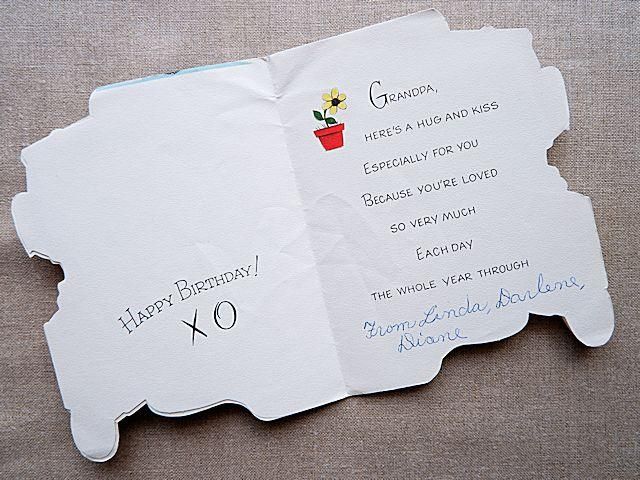 Happy Birthday!
X O
Grandpa,
here's a hug and kiss
Especially for you
Because you're loved
so very much
Each day
the whole year through
From Linda, Darlene,
Diane